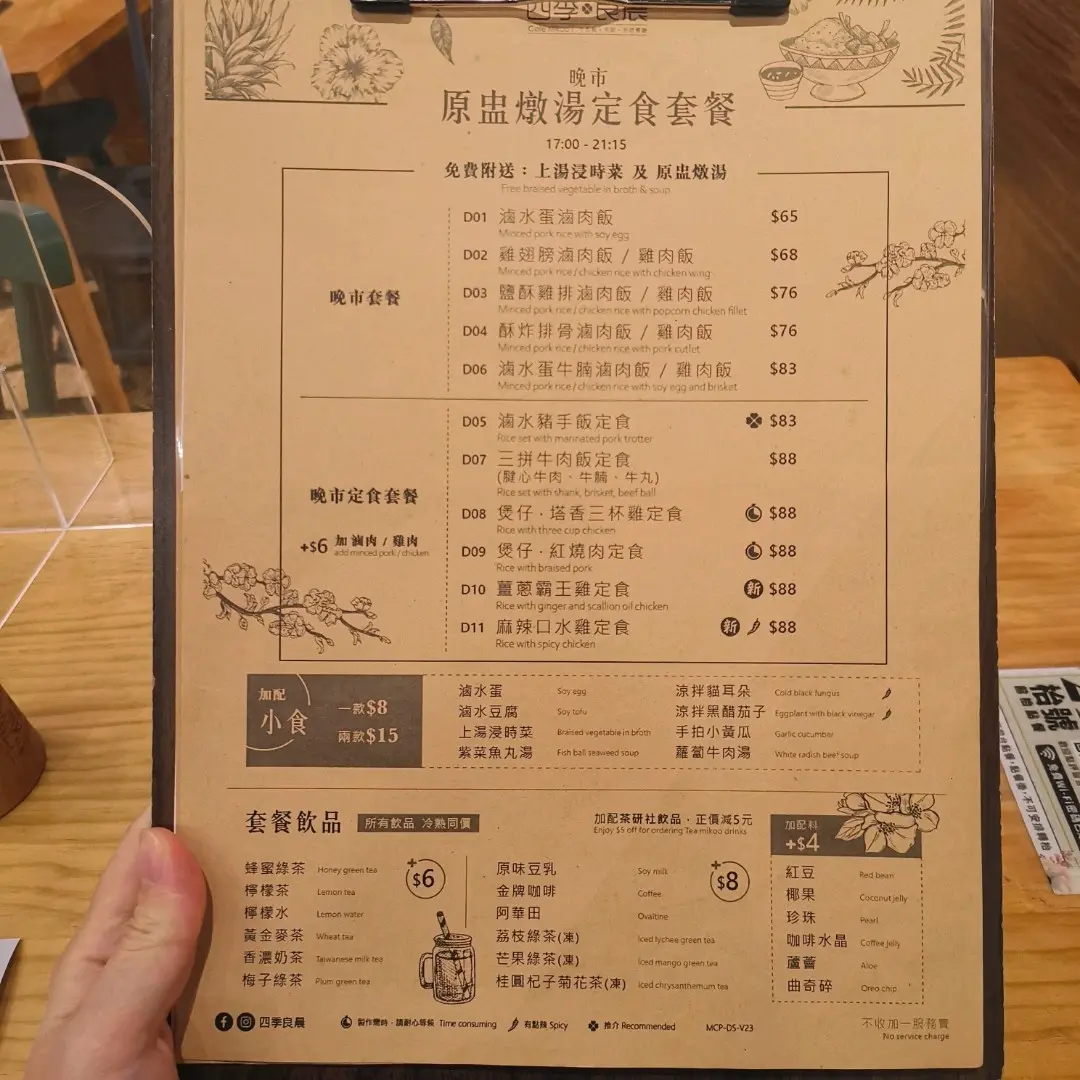 四季良晨
晚市
原盅燉湯定食套餐
17:00 - 21:15
免費附送：上湯浸時菜 及 原盅燉湯
Free braised vegetable in broth & soup
晚市套餐
D01 滷水蛋滷肉飯 $65
Minced pork rice with soy egg
D02 雞翅膀滷肉飯 / 雞肉飯 $68
Minced pork rice / chicken rice with chicken wing
D03 鹽酥雞排滷肉飯 / 雞肉飯 $76
Minced pork rice / chicken rice with popcorn chicken fillet
D04 酥炸排骨滷肉飯 / 雞肉飯 $76
Minced pork rice / chicken rice with pork cutlet
D06 滷水蛋牛腩滷肉飯 / 雞肉飯 $83
Minced pork rice / chicken rice with soy egg and brisket
晚市定食套餐
+$6 加 滷肉 / 雞肉
add minced pork / chicken
D05 滷水豬手飯定食 $83
Rice set with marinated pork trotter
D07 三拼牛肉飯定食 $88
(腱心牛肉、牛腩、牛丸)
Rice set with shank, brisket, beef ball
D08 煲仔·塔香三杯雞定食 $88
Rice with three cup chicken
D09 煲仔·紅燒肉定食 $88
Rice with braised pork
D10 薑蔥霸王雞定食 新 $88
Rice with ginger and scallion oil chicken
D11 麻辣口水雞定食 新 $88
Rice with spicy chicken
加配
小食
一款$8
兩款$15
滷水蛋 Soy egg
滷水豆腐 Soy tofu
上湯浸時菜 Braised vegetable in broth
紫菜魚丸湯 Fish ball seaweed soup
涼拌貓耳朵 Cold black fungus
涼拌黑醋茄子 Eggplant with black vinegar
手拍小黃瓜 Garlic cucumber
蘿蔔牛肉湯 White radish beef soup
套餐飲品 所有飲品 冷熱同價
加配茶研社飲品，正價減5元
Enjoy $5 off for ordering Teamikoo drinks
蜂蜜綠茶 Honey green tea
檸檬茶 Lemon tea
檸檬水 Lemon water
黃金麥茶 Wheat tea
香濃奶茶 Taiwanese milk tea
梅子綠茶 Plum green tea
+$6
原味豆乳 Soy milk
金牌咖啡 Coffee
阿華田 Ovaltine
荔枝綠茶(凍) Iced lychee green tea
芒果綠茶(凍) Iced mango green tea
桂圓杞子菊花茶(凍) Iced chrysanthemum tea
+$8
加配料
+$4
紅豆 Red bean
椰果 Coconut jelly
珍珠 Pearl
咖啡水晶 Coffee Jelly
蘆薈 Aloe
曲奇碎 Oreo chip
四季良晨
製作需時，請耐心等候 Time consuming
有點辣 Spicy
推介 Recommended
MCP-DS-V23
不收加一服務費
No service charge